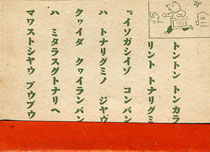 トントン トンカラ
リント トナリグミ
『イソガシイゾ コンバン
ハ トナリグミノ ジャヴ
クヮイダ クヮイランバン
ハ ミタラスグトナリヘ
マワストシヤウ ブウブウ